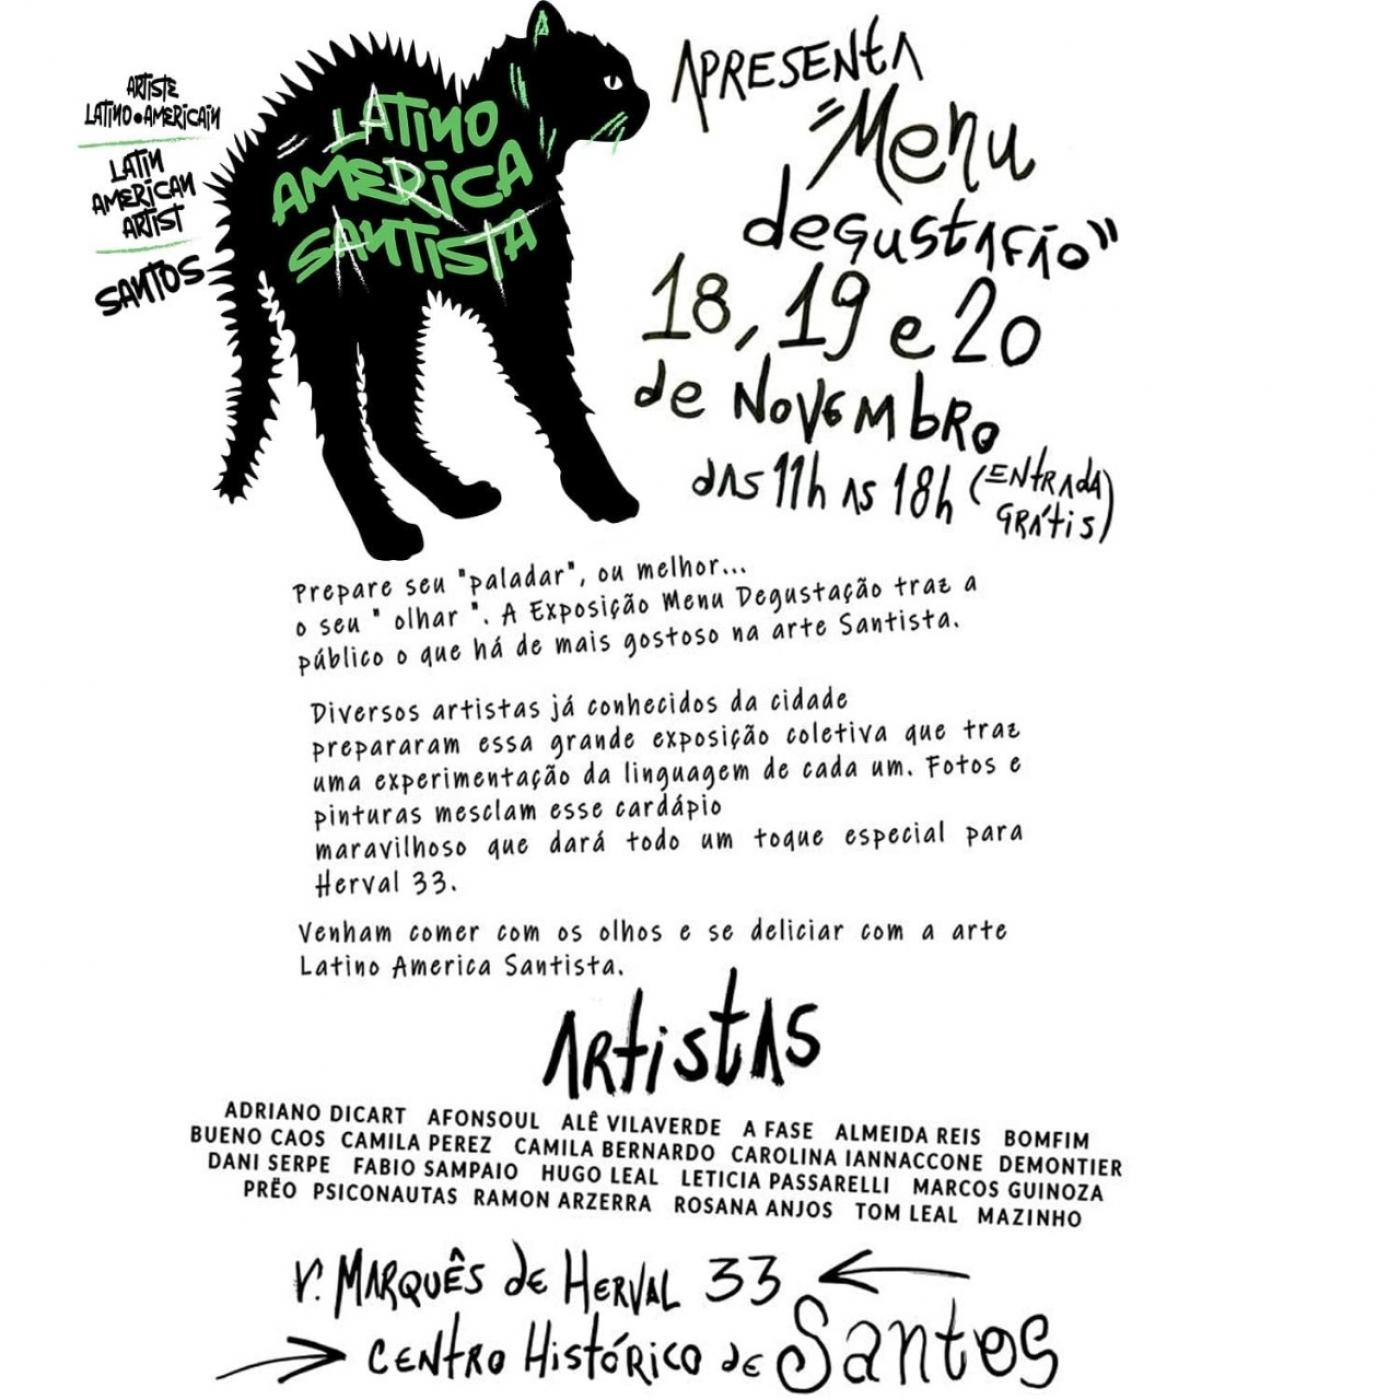 ARTISTE
LATINO•AMERICAIN
LATIN
AMERICAN
ARTIST
SANTOS
LATINO
AMERICA
SANTISTA
APRESENTA
"Menu
degustação"
18, 19 e 20
de NoVeMbRo
das 11h as 18h (ENTRAdA
GRÁtiS)
Prepare seu "paladar", ou melhor...
o seu " olhar ". A Exposição Menu Degustação traz a
público o que há de mais gostoso na arte Santista.
Diversos artistas já conhecidos da cidade
prepararam essa grande exposição coletiva que traz
uma experimentação da linguagem de cada um. Fotos e
pinturas mesclam esse cardápio
maravilhoso que dará todo um toque especial para
Herval 33.
Venham comer com os olhos e se deliciar com a arte
Latino America Santista.
ARtistAS
ADRIANO DICART AFONSOUL ALÊ VILAVERDE A FASE ALMEIDA REIS BOMFIM
BUENO CAOS CAMILA PEREZ CAMILA BERNARDO CAROLINA IANNACCONE DEMONTIER
DANI SERPE FABIO SAMPAIO HUGO LEAL LETICIA PASSARELLI MARCOS GUINOZA
PRËO PSICONAUTAS RAMON ARZERRA ROSANA ANJOS TOM LEAL MAZINHO
r. MARQUÊS de HERVAL 33
CENTRO HistÓRICO de Santos